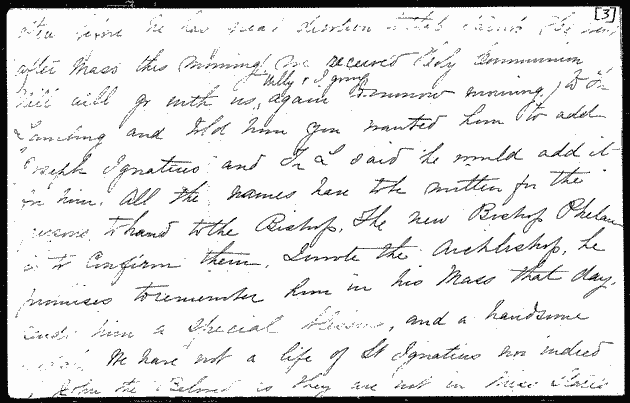 [3]
after Mass this morning, we received Holy Communion
Willy & I going
will go with us, again tomorrow morning, to Fr
Lambing and told him you wanted him to add
Joseph Ignatius and Fr L said he would add it
for him. All the names have to be written for the
to hand to the Bishop. The new Bishop Phelan
is to Confirm them. I wrote the Archbishop, he
promises to remember him in his Mass that day.
him a special blessing, and a handsome
We have not a life of St Ignatius nor indeed
John the Beloved is they are not in these States